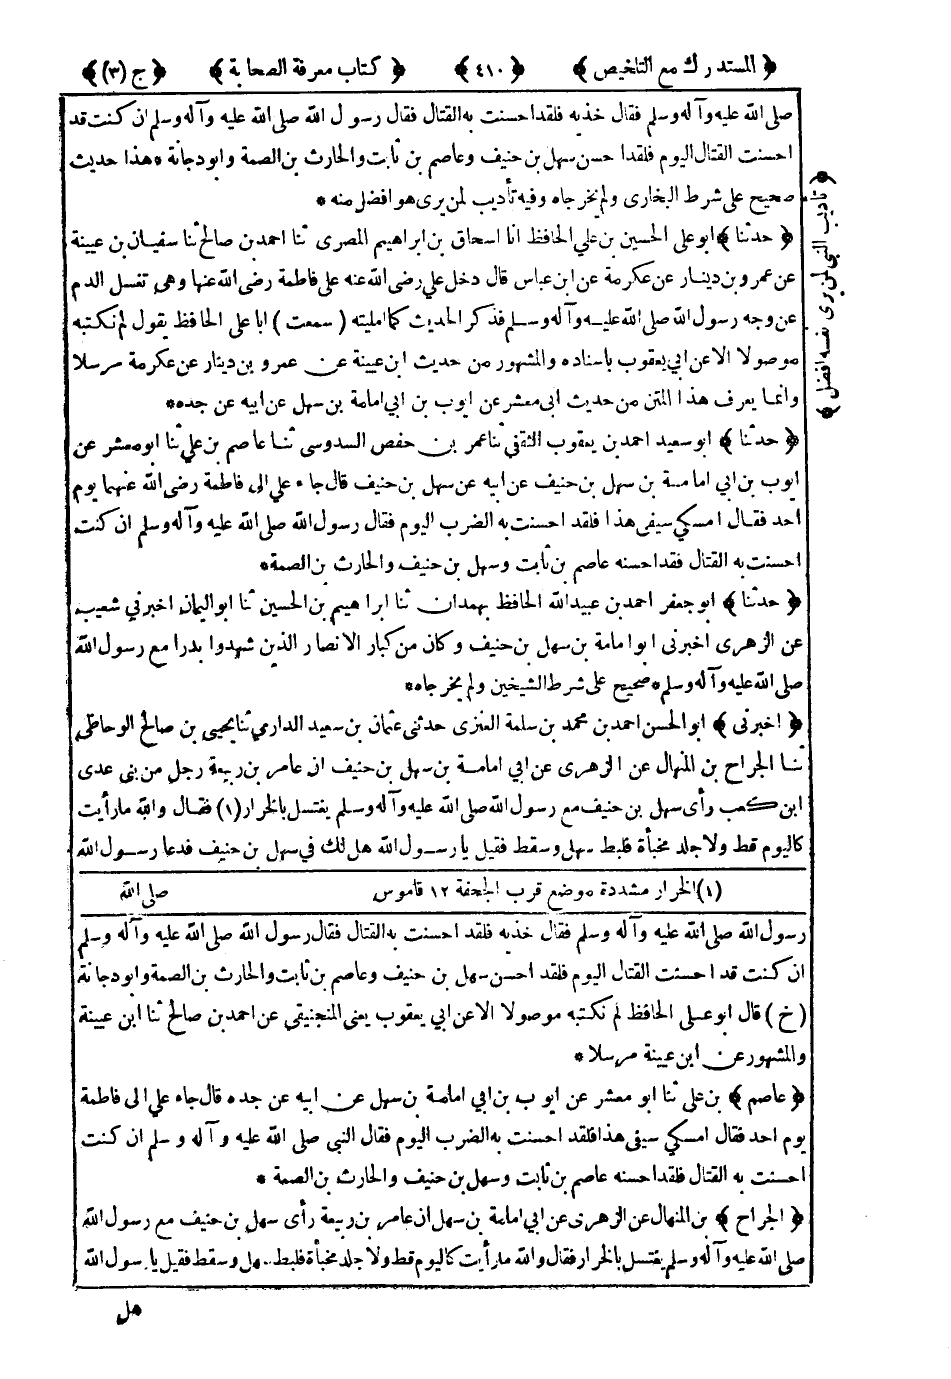 ﴿ المستدرك مع التلخيص ﴾ ﴿ ٤١٠ ﴾ ﴿ كتاب معرفة الصحابة ﴾ ﴿ ج (٣) ﴾
صلى الله عليه وآله وسلم فقال خذيه فلقد احسنت به القتال فقال رسول الله صلى الله عليه وآله وسلم ان كنت قد
احسنت القتال اليوم فلقد احسن سهل بن حنيف وعاصم بن ثابت والحارث بن الصمة وابودجانة * هذا حديث
صحيح على شرط البخارى ولم يخرجاه وفيه تأديب لمن يرى هو افضل منه *
﴿ حدثنا ﴾ ابو على الحسين بن علي الحافظ انا اسحاق بن ابراهيم المصرى ثنا احمد بن صالح ثنا سفيان بن عيينة
عن عمرو بن دينار عن عكرمة عن ابن عباس قال دخل علي رضى الله عنه على فاطمة رضى الله عنها وهى تغسل الدم
عن وجه رسول الله صلى الله عليه وآله وسلم فذكر الحديث كما امليته ( سمعت ) ابا على الحافظ يقول لم نكتبه
موصولا الا عن ابي يعقوب باسناده والمشهور من حديث ابن عيينة عن عمرو بن دينار عن عكرمة مرسلا
وانما يعرف هذا المتن من حديث ابى معشر عن ايوب بن ابي امامة بن سهل عن ابيه عن جده *
﴿ حدثنا ﴾ ابو سعيد احمد بن يعقوب الثقفي ثنا عمر بن حفص السدوسى ثنا عاصم بن علي ثنا ابو معشر عن
ايوب بن ابي امامة بن سهل بن حنيف عن ابيه عن سهل بن حنيف قال جاء علي الى فاطمة رضى الله عنهما يوم
احد فقال امسكي سيفى هذا فلقد احسنت به الضرب اليوم فقال رسول الله صلى الله عليه وآله وسلم ان كنت
احسنت به القتال فقد احسنه عاصم بن ثابت وسهل بن حنيف والحارث بن الصمة *
﴿ حدثنا ﴾ ابو جعفر احمد بن عبيد الله الحافظ بهمدان ثنا ابراهيم بن الحسين ثنا ابو اليمان اخبرني شعيب
عن الزهرى اخبرنى ابو امامة بن سهل بن حنيف وكان من كبار الانصار الذين شهدوا بدرا مع رسول الله
صلى الله عليه وآله وسلم * صحيح على شرط الشيخين ولم يخرجاه *
﴿ اخبرنى ﴾ ابو الحسن احمد بن محمد بن سلمة العنزى حدثنى عثمان بن سعيد الدارمي ثنا يحيى بن صالح الوحاظى
ثنا الجراح بن المنهال عن الزهرى عن ابي امامة بن سهل بن حنيف ان عامر بن ربيعة رجل من بنى عدى
ابن كعب رأى سهل بن حنيف مع رسول الله صلى الله عليه وآله وسلم يغتسل بالخرار (١) فقال والله ما رأيت
كاليوم قط ولا جلد مخبأة فلبط سهل وسقط فقيل يا رسول الله هل لك في سهل بن حنيف فدعا رسول الله
(١) الخرار مشددة موضع قرب الجحفة ١٢ قاموس
صلى الله
رسول الله صلى الله عليه وآله وسلم فقال خذيه فلقد احسنت به القتال فقال رسول الله صلى الله عليه وآله وسلم
ان كنت قد احسنت القتال اليوم فلقد احسن سهل بن حنيف وعاصم بن ثابت والحارث بن الصمة وابودجانة
( خ ) قال ابو على الحافظ لم نكتبه موصولا الا عن ابي يعقوب يعنى المنجنيقى عن احمد بن صالح ثنا ابن عيينة
والمشهور عن ابن عيينة مرسلا *
﴿ عاصم ﴾ بن على ثنا ابو معشر عن ايوب بن ابي امامة بن سهل عن ابيه عن جده قال جاء علي الى فاطمة
يوم احد فقال امسكى سيفى هذا فلقد احسنت به الضرب اليوم فقال النبي صلى الله عليه وآله وسلم ان كنت
احسنت به القتال فلقد احسنه عاصم بن ثابت وسهل بن حنيف والحارث بن الصمة *
﴿ الجراح ﴾ بن المنهال عن الزهرى عن ابي امامة بن سهل ان عامر بن ربيعة رأى سهل بن حنيف مع رسول الله
صلى الله عليه وآله وسلم يغتسل بالخرار فقال والله ما رأيت كاليوم قط ولا جلد مخبأة فلبط سهل وسقط فقيل يا رسول الله
هل
﴿ تأديب النبي لمن يرى نفسه افضل ﴾